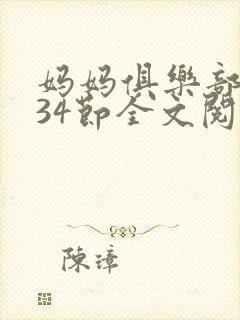 妈妈俱樂部
34節全文閱
陳璋